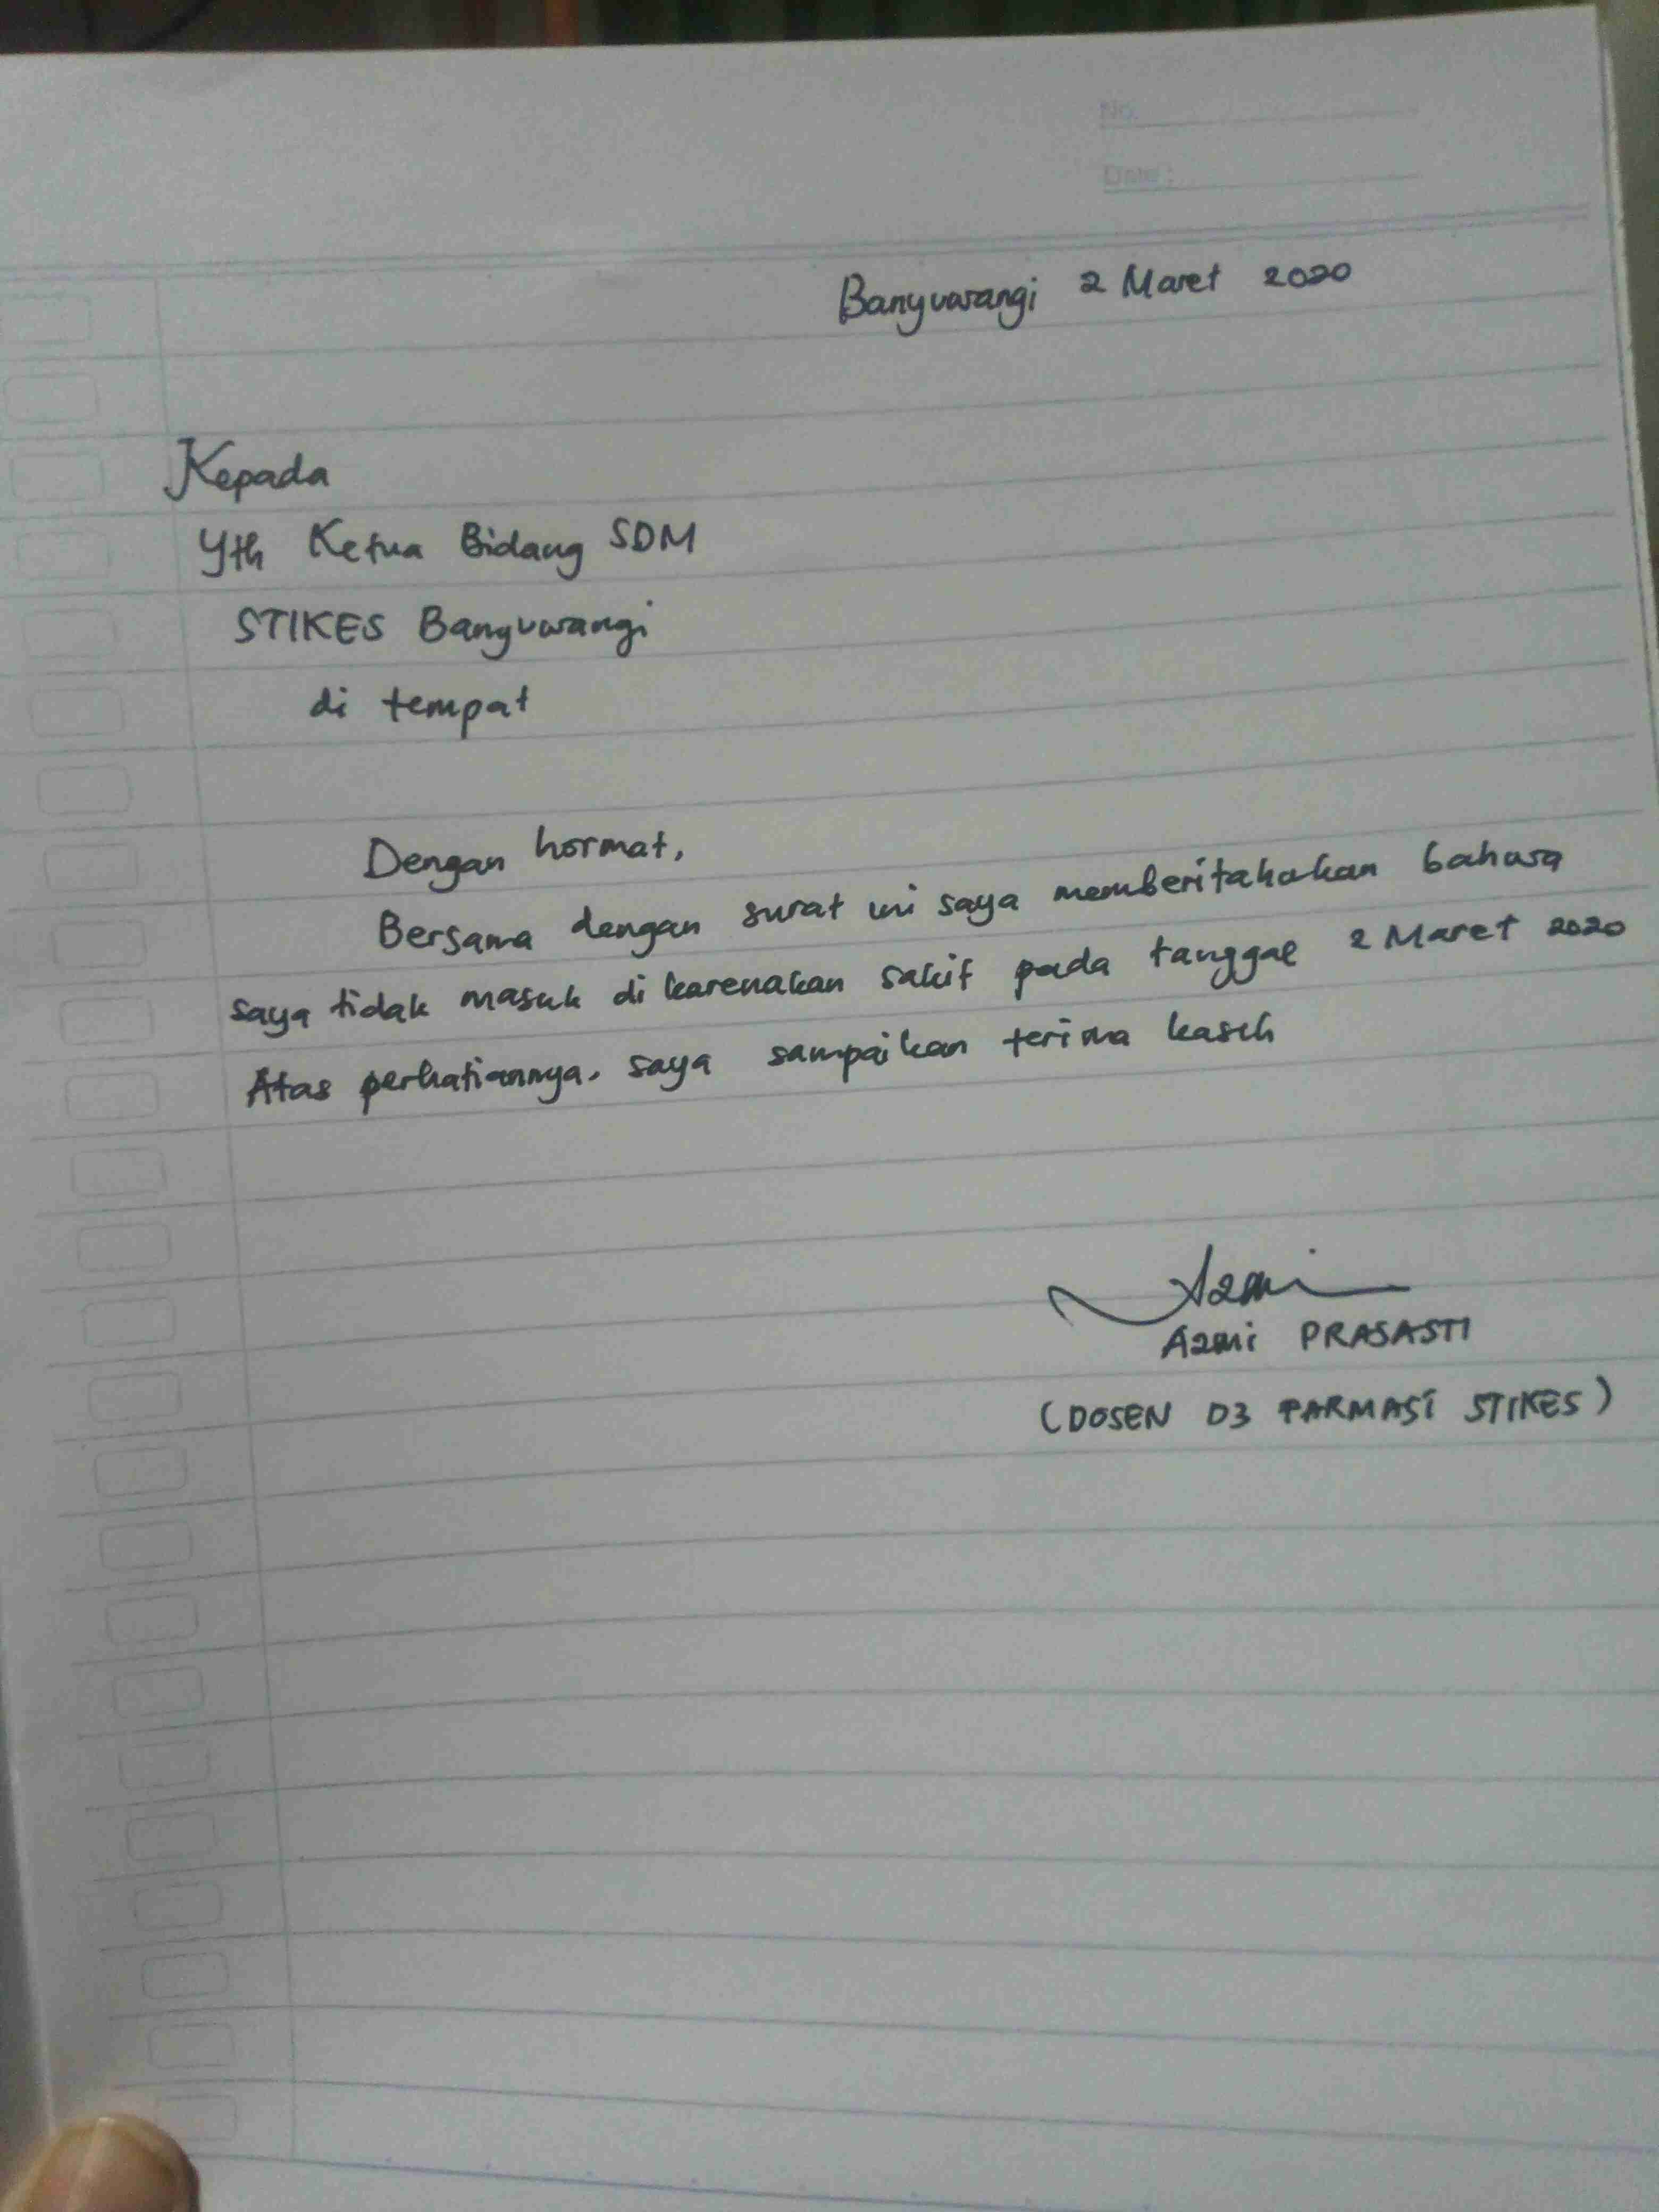 No.
Date :
Banyuwangi 2 Maret 2020
Kepada
Yth Ketua Bidang SDM
STIKES Banyuwangi
di tempat
Dengan hormat,
Bersama dengan surat ini saya memberitahukan bahwa
saya tidak masuk di karenakan sakit pada tanggal 2 Maret 2020
Atas perhatiannya. saya sampaikan terima kasih
Azmi
Azmi PRASASTI
(DOSEN D3 FARMASI STIKES)